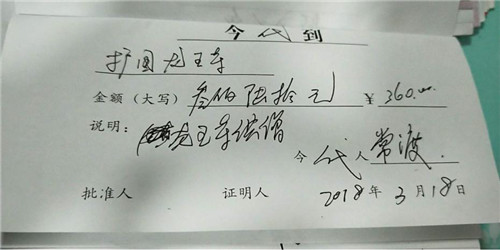 今代到
护国龙王寺
金额（大写）叁佰陆拾元 ￥360.00
说明：龙王寺供僧
今代人常渡
批准人 证明人 2018年3月18日